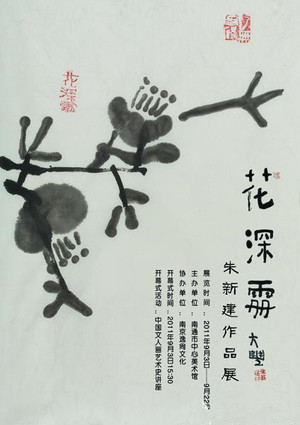 花深處
花深處
朱新建作品展
大豐
展览时间：2011年9月3日——9月22日
主办单位：南通市中心美术馆
协办单位：南京逸尚文化
开幕式时间：2011年9月3日15:30
开幕式活动：中国文人画艺术史讲座